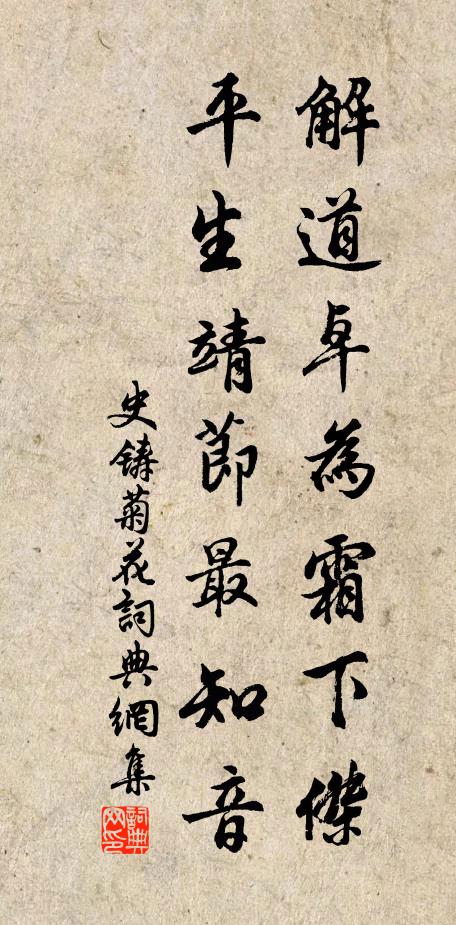 解道卓為霜下傑
平生靖節最知音
史鑄菊花詞典網集
詞典网印